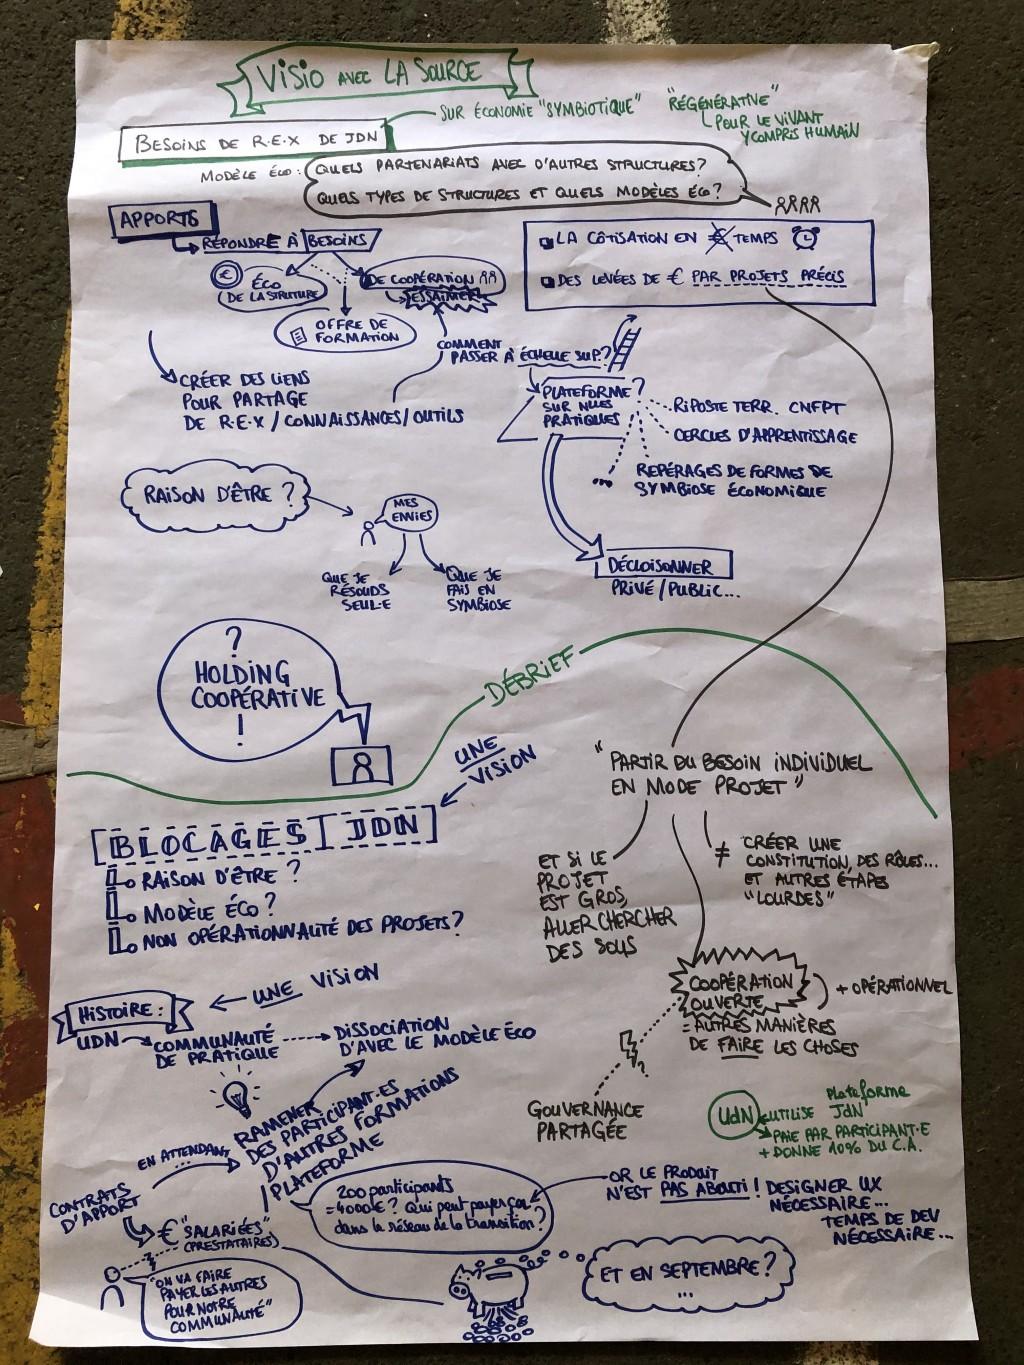 VISIO AVEC LA SOURCE
SUR ÉCONOMIE "SYMBIOTIQUE"
"RÉGÉNÉRATIVE"
POUR LE VIVANT
Y COMPRIS HUMAIN
BESOINS DE R.E.X DE JDN
MODÈLE ÉCO :
QUELS PARTENARIATS AVEC D'AUTRES STRUCTURES?
QUELS TYPES DE STRUCTURES ET QUELS MODÈLES ÉCO?
APPORTS
RÉPONDRE À BESOINS
€ ÉCO
DE LA STRUTURE
DE COOPÉRATION
ESSAIMER
OFFRE DE
FORMATION
LA CÔTISATION EN € TEMPS
DES LEVÉES DE € PAR PROJETS PRÉCIS
CRÉER DES LIENS
POUR PARTAGE
DE R.E.X / CONNAISSANCES / OUTILS
COMMENT
PASSER À ÉCHELLE SUP.?
PLATEFORME?
SUR NLLES
PRATIQUES
RIPOSTE TERR. CNFPT
CERCLES D'APPRENTISSAGE
REPÉRAGES DE FORMES DE
SYMBIOSE ÉCONOMIQUE
...
DÉCLOISONNER
PRIVÉ / PUBLIC...
RAISON D'ÊTRE ?
MES
ENVIES
QUE JE
RÉSOUDS
SEUL·E
QUE JE
FAIS EN
SYMBIOSE
?
HOLDING
COOPÉRATIVE
!
DÉBRIEF
UNE
VISION
BLOCAGES JDN
RAISON D'ÊTRE ?
MODÈLE ÉCO ?
NON OPÉRATIONNALITÉ DES PROJETS ?
"PARTIR DU BESOIN INDIVIDUEL
EN MODE PROJET"
ET SI LE
PROJET
EST GROS,
ALLER CHERCHER
DES SOUS
≠ CRÉER UNE
CONSTITUTION, DES RÔLES...
ET AUTRES ÉTAPES
"LOURDES"
COOPÉRATION
OUVERTE
+ OPÉRATIONNEL
= AUTRES MANIÈRES
DE FAIRE LES CHOSES
GOUVERNANCE
PARTAGÉE
HISTOIRE :
UNE VISION
UDN
COMMUNAUTÉ
DE PRATIQUE
DISSOCIATION
D'AVEC LE MODÈLE ÉCO
RAMENER
DES PARTICIPANT·ES
D'AUTRES FORMATIONS
/ PLATEFORME
EN ATTENDANT
...
CONTRATS
D'APPORT
€ "SALARIÉES"
(PRESTATAIRES)
"ON VA FAIRE
PAYER LES AUTRES
POUR NOTRE
COMMUNAUTÉ"
200 participants
= 4000€ ? Qui peut payer ça
dans le réseau de la transition ?
UdN UTILISE Plateforme
JdN
PAIE PAR PARTICIPANT·E
+ DONNE 10% DU C.A.
OR LE PRODUIT
N'EST PAS ABOUTI ! DESIGNER UX
NÉCESSAIRE...
TEMPS DE DEV
NÉCESSAIRE...
ET EN SEPTEMBRE ?
...